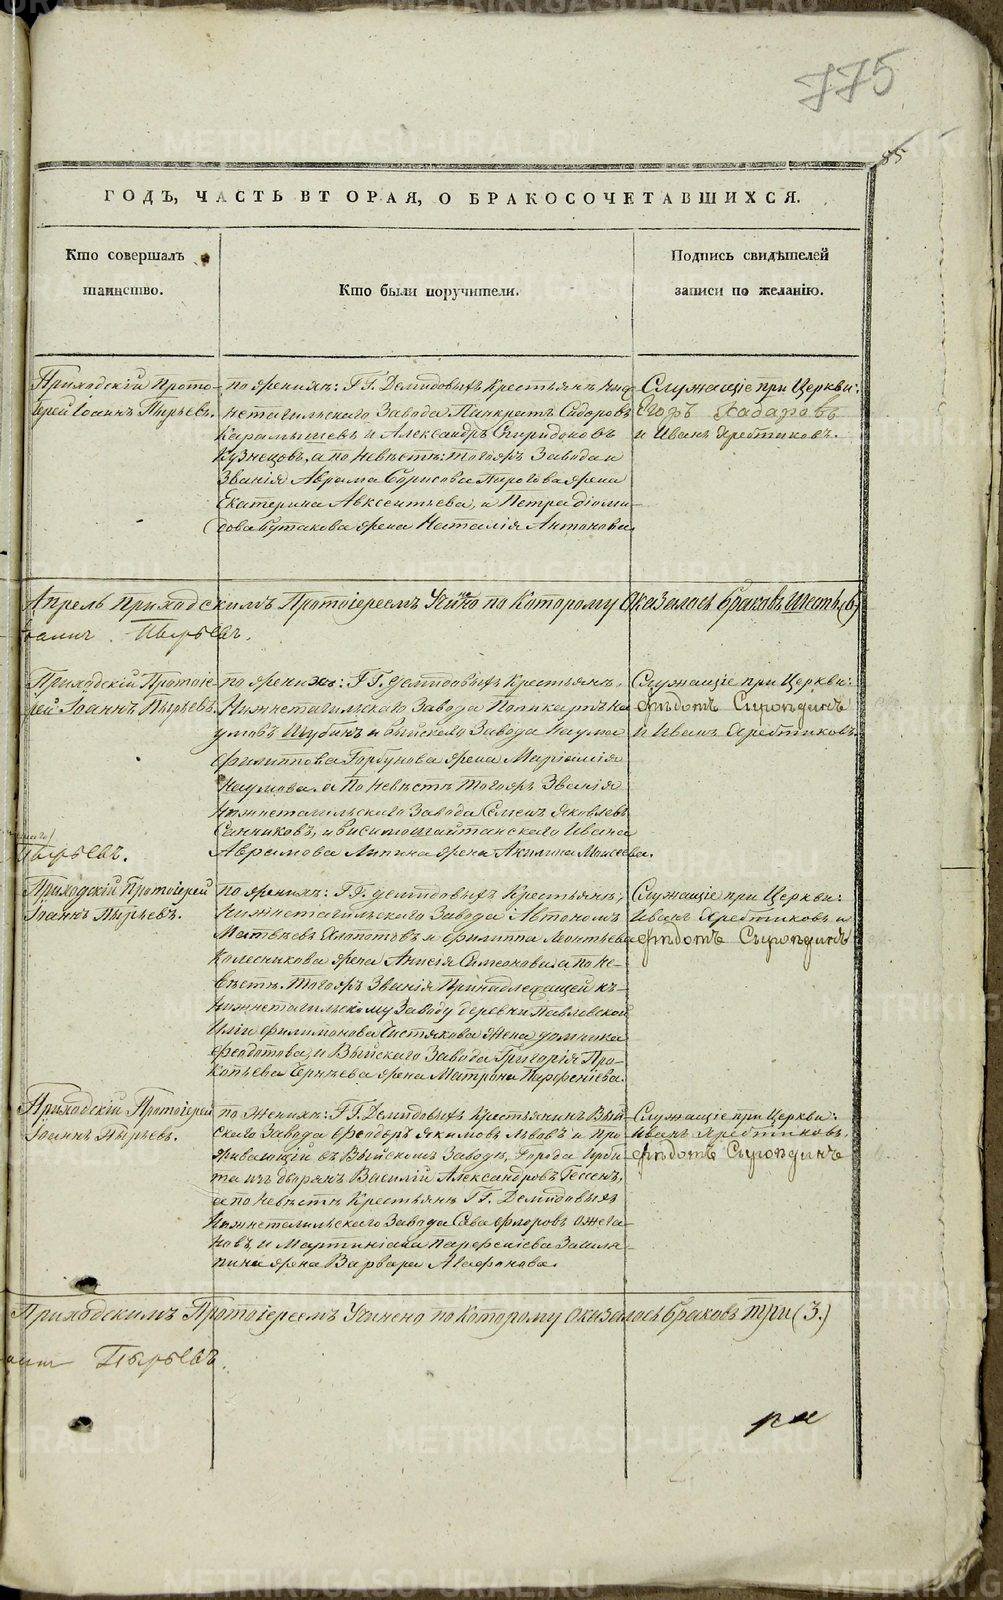 775
85
ГОДЪ, ЧАСТЬ ВТОРАЯ, О БРАКОСОЧЕТАВШИХСЯ.
Кто совершалъ таинство.
Кто были поручители.
Подпись свидѣтелей записи по желанію.
Приходскій Прото-
іерей Іоаннъ Пырьевъ.
по женихѣ: Г.Г. Демидовыхъ Крестьянъ Ниж
нетагильскаго Завода Панкратъ Сидоровъ
Карамышевъ и Александръ Спиридоновъ
Кузнецовъ, а по невѣстѣ: тогожъ Завода и
Званія Аврама Борисова Пирогова жена
Екатерина Авксентьева, и Петра Діоми-
дова Бутакова жена Наталія Антонова.
Служащіе при Церкви:
Егоръ
и Иванъ Хребтиковъ.
Апрель Приходскимъ Протоіереемъ Учинено по Которому Оказалось браковъ Шесть (6)
Пырьевъ.
Приходскій Протоіе-
рей Іоаннъ Пырьевъ.
по женихѣ: Г.Г. Демидовыхъ Крестьянъ,
Нижнетагильскаго Завода Поликарпъ На
умовъ Шубинъ и Выйскаго Завода Наума
Филиппова Горбунова жена Маріамія
Наумова. а По невѣстѣ тогожъ Званія
Нижнетагильскаго Завода Семенъ Яковлевъ
Санниковъ, и Висимошайтанскаго Ивана
Аврамова Липина жена Акилина Моисеева.
Служащіе при Церкви:
Ѳедотъ
и Иванъ Хребтиковъ.
Пырьевъ.
Приходскій Протоіерей
Іоаннъ Пырьевъ.
по женихѣ: Г.Г. Демидовыхъ Крестьянъ,
Нижнетагильскаго Завода Автономъ
Матвѣевъ Хлопотовъ и Филиппа Леонтьева
Колесникова жена Анисія Симеонова. а по не-
вѣстѣ. тогожъ Званія Принадлежащей къ
Нижнетагильскому Заводу деревни Павловской
Иліи Филимонова Чистякова жена Домника
Феодотова, и Выйскаго Завода Григорія Про-
копьева Чернѣева жена Матрона Парфеніева.
Служащіе при Церкви:
Иванъ Хребтиковъ и
Ѳедотъ
Приходскій Протоіерей
Іоаннъ Пырьевъ.
по Женихѣ: Г.Г. Демидовыхъ Крестьянинъ Вый
скаго Завода Феодоръ Якимовъ Львовъ и Про
живающій въ Выйскомъ Заводѣ, Города Ирби
та изъ дворянъ Василій Александровъ Гессенъ,
а по невѣстѣ Крестьянъ Г.Г. Демидовыхъ
Нижнетагильскаго Завода Сава Флоровъ Ожега
новъ, и Мартиніана Парфеніева Зашля
пина жена Варвара Агафонова.
Служащіе при Церкви:
Иванъ Хребтиковъ.
Ѳедотъ
Приходскимъ Протоіереемъ Учинено по Которому Оказалось браковъ три (3.)
Пырьевъ.
METRIKI.GASO-URAL.RU